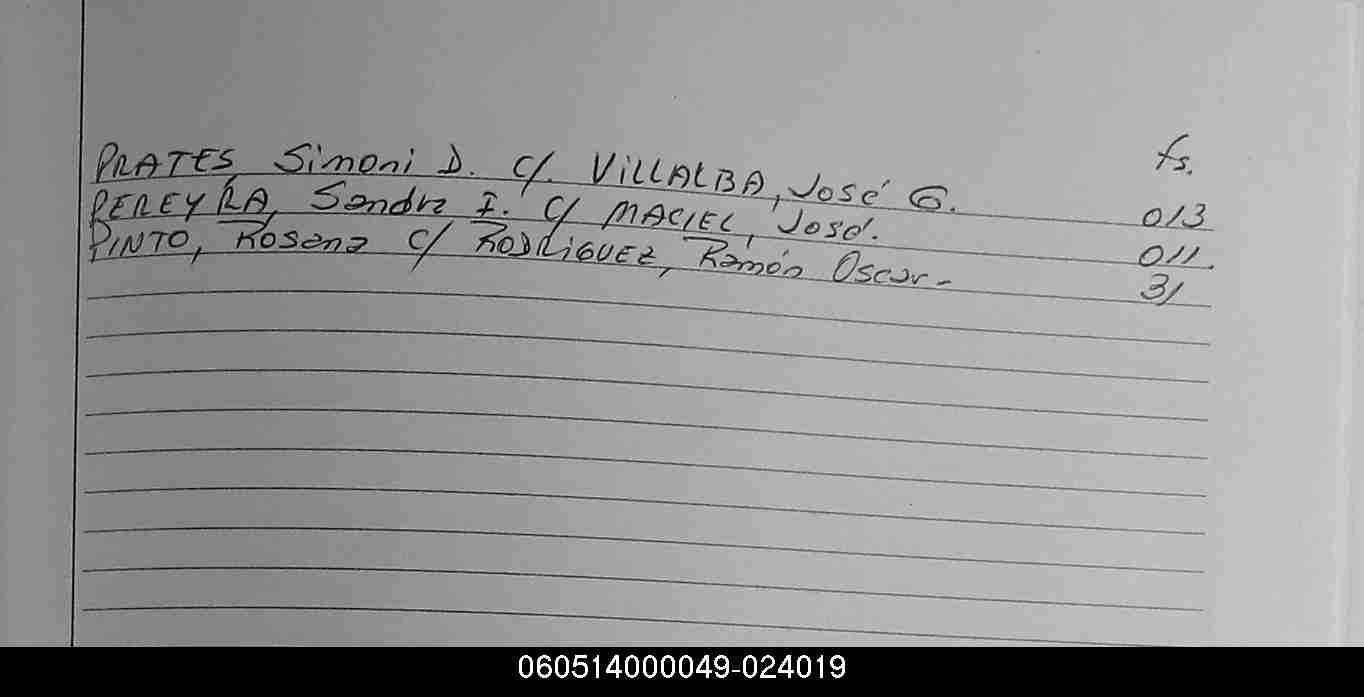 fs.
PRATES, Simoni D. c/. VILLALBA, José G. 013
PEREYRA, Sandra I. c/ MACIEL, José. 011.
PINTO, Rosana c/ RODRIGUEZ, Ramón Oscar.- 31
060514000049-024019